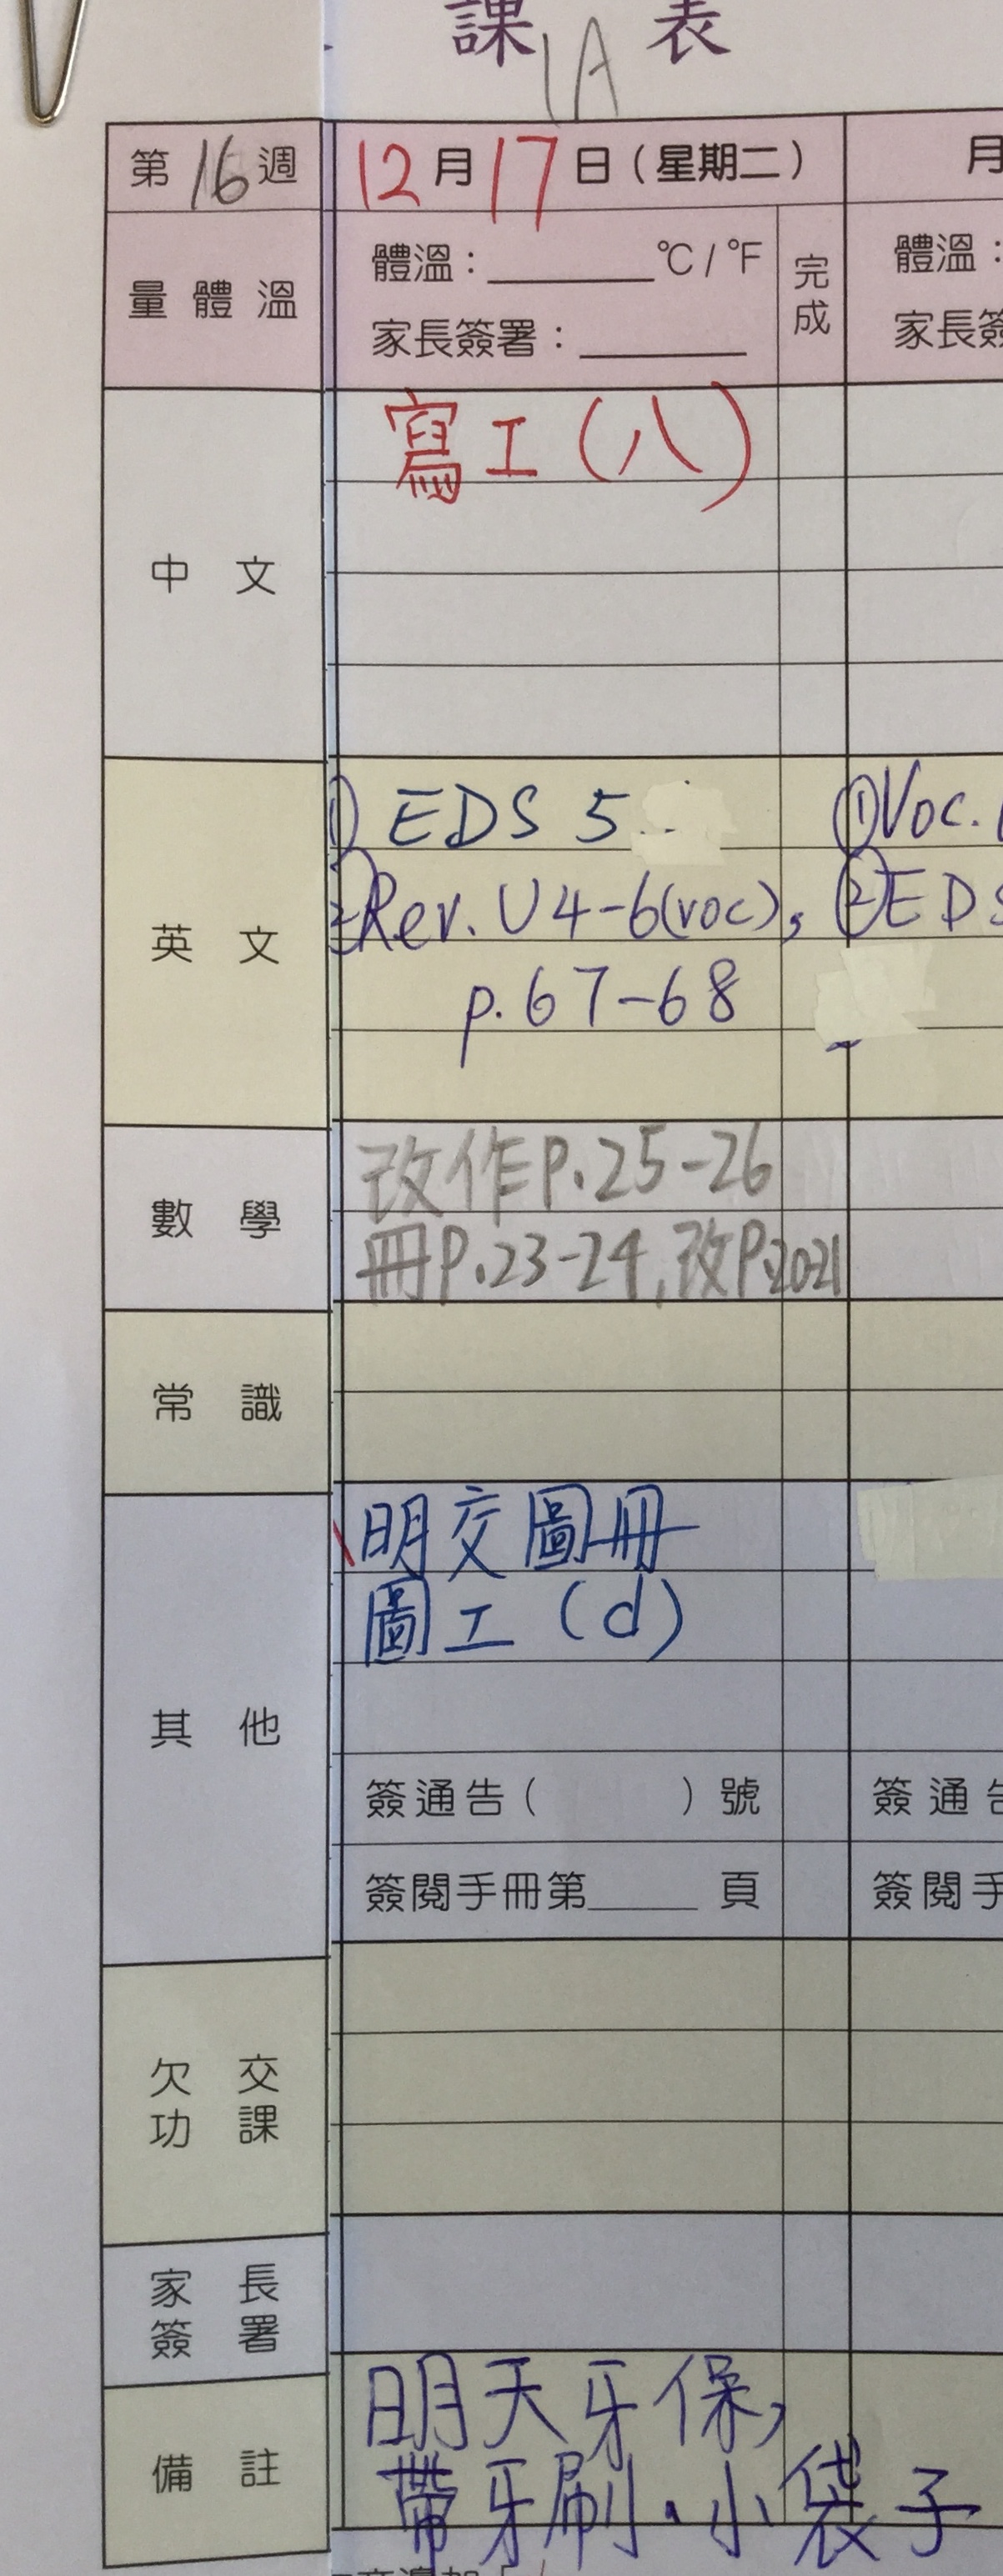 課 表
1A
第16週 12月17日（星期二） 月
量體溫
體溫：______°C / °F 完成 體溫：
家長簽署：______ 家長簽
中文
寫工（八）
英文
① EDS 5 ① Voc.
② Rev. U4-6(voc), ② EDS
p.67-68
數學
改作P.25-26
冊P.23-24,改P.20-21
常識
其他
明交圖冊
圖工（d）
簽通告（ ）號 簽通告
簽閱手冊第______頁 簽閱手
欠交功課
家長簽署
備註
明天牙保,
帶牙刷、小袋子